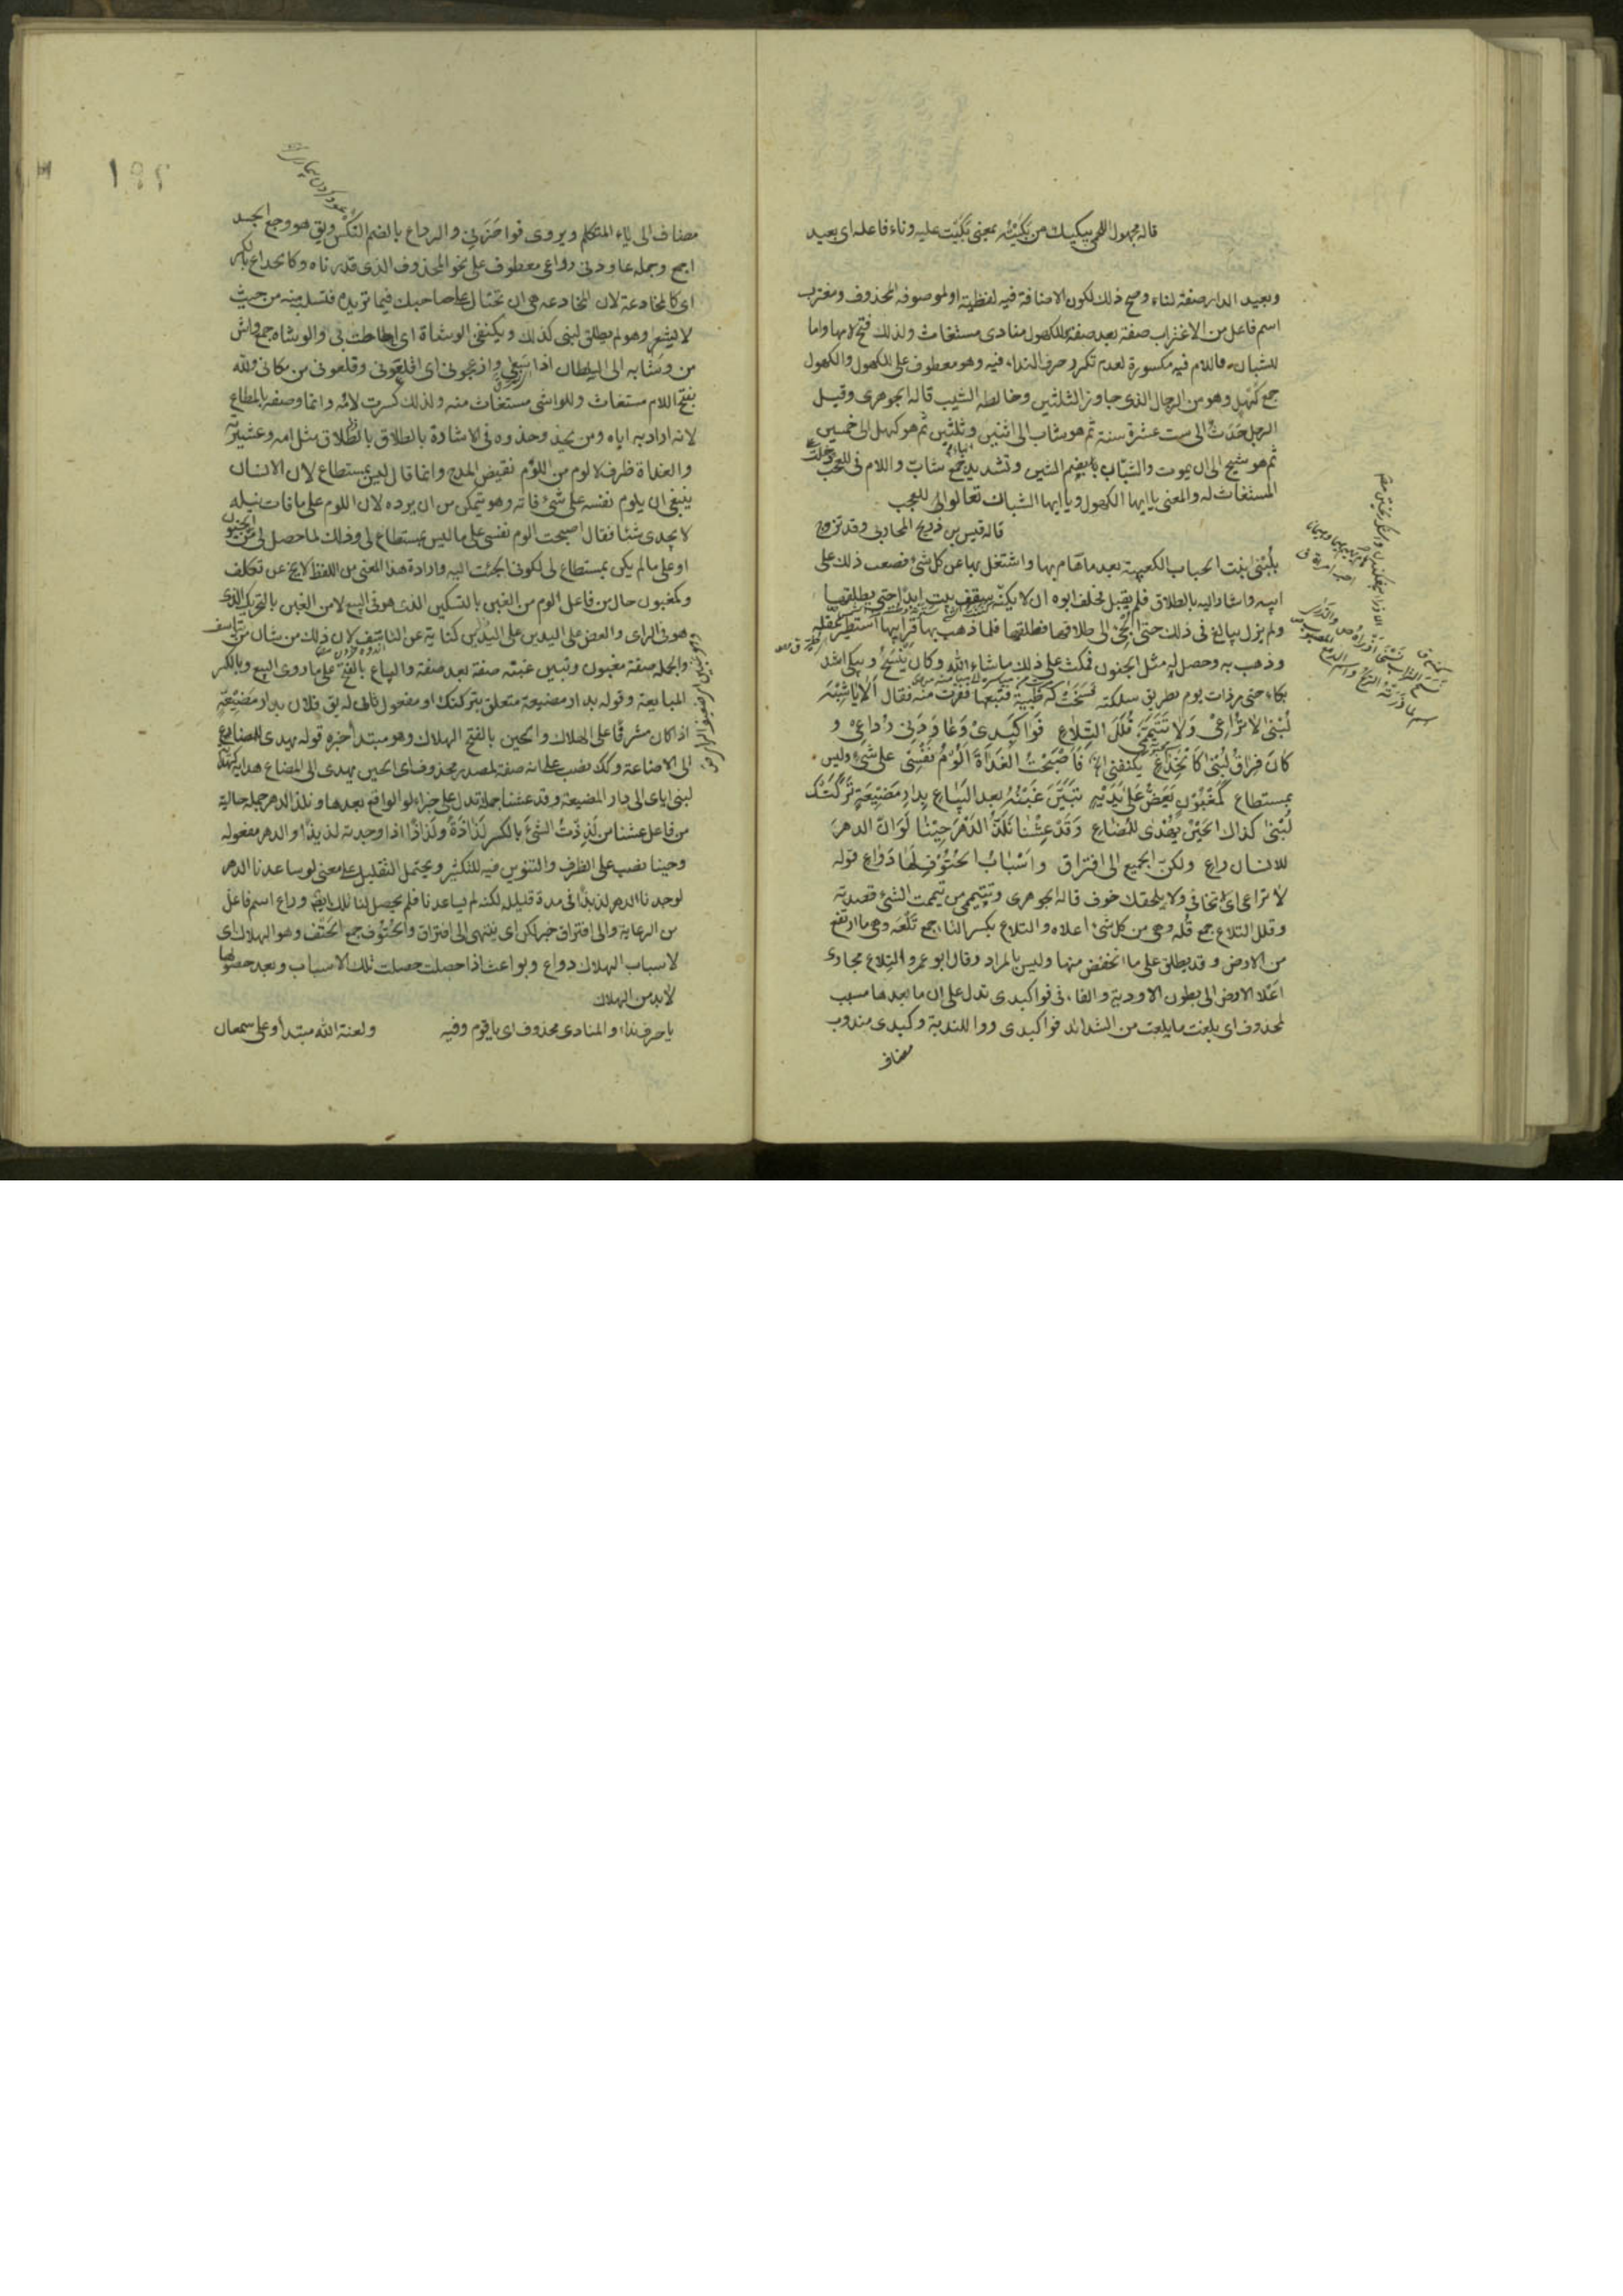 قاله مجهول اللهم يبكيك من بكيته بمعنى بكيت عليه وناء فاعله اى بعيد
وبعيد الدار صفة لناء وصح ذلك لكون الاضافة فيه لفظية او لموصوفه المحذوف ومغترب
اسم فاعل من الاغتراب صفة بعد صفة للكهول منادى مستغاث ولذلك فتح لامها واما
للشبان فاللام فيه مكسورة لعدم تكرر حرف النداء فيه وهو معطوف على للكهول والكهول
جمع كهل وهو من الرجال الذى جاوز الثلثين وخالطه الشيب قاله الجوهرى وقيل
الرجل حدث الى ست عشرة سنة ثم هو شاب الى اثنين وثلثين ثم هو كهل الى خمسين
ثم هو شيخ الى ان يموت والشبان بضم الشين وتشديد جمع شاب واللام فى للعجب
المستغاث له والمعنى يا ايها الكهول ويا ايها الشبان تعالوا للعجب
قاله قيس بن ذريح المحاربى وقد تزوج
بلبنى بنت الحباب الكعبية بعدما هام بها واشتغل بها عن كل شئ فصعب ذلك على
ابيه واشار اليه بالطلاق فلم يقبل فحلف ابوه ان لا يكنه سقف بيت ابدا حتى يطلقها
ولم يزل يبالغ فى ذلك حتى الى طلاقها فطلقها فلما ذهب بها قرابتها استطير عقله
وذهب به وحصل له مثل الجنون فمكث على ذلك ماشاء الله وكان ويبكى اشد
بكاء حتى مر ذات يوم بطريق سلكته فسنحت له ظبية فتبعها ففرت منه فقال الا يا شبه
لبنى لا تراعى ولا تتيممى قلل التلاع فوا كبدى وعاودنى رداعى و
كان فراق لبنى كالخداع يكنفنى فاصبحت الغداة الوم نفسى على شئ وليس
بمستطاع كمغبون يعض على يديه تبين غبنه بعد البياع بدار مضيعة تركتك
لبنى كذاك الحين يهدى للمضاع وقد عشنا نلذ الدهر حينا لو ان الدهر
للانسان راع ولكن الجميع الى افتراق واسباب الحتوف لها دواع قوله
لا تراعى اى لا تخافى ولا يلحقك خوف قاله الجوهرى وتتيممى من تيممت الشئ قصدته
وقلل التلاع جمع قله وهى من كل شئ اعلاه والتلاع بكسر التاء جمع تلعة وهى ما ارتفع
من الارض وقد يطلق على ما انخفض منها وليس بالمراد وقال ابو عمرو التلاع مجارى
اعلا الارض الى بطون الاودية والفاء فى فوا كبدى تدل على ان ما بعدها مسبب
لمحذوف اى بلغت ما بلغت من الشدائد فوا كبدى ووا للندبة وكبدى مندوب
مضاف
مضاف الى ياء المتكلم ويروى فوا حزنى والرداع بالضم النكس ويق هو وجع الجسد
اجمع وجمله عاودنى رداعى معطوف على نحو المحذوف الذى قدرناه وكالخداع
اى كالمخادعة لان المخادعه هى ان تحتال على صاحبك فيما تريده من حيث
لا يشعر وهو لم يطلق لبنى كذلك ويكنفنى الوشاة اى احاطت بى والوشاه جمع واش
من وشى به الى السلطان اذا سعى وازعجونى اى اقلقونى وقلعونى من مكانى ولله
بفتح اللام مستغاث وللواشى مستغاث منه ولذلك كسرت لامه وانما وصفه بالمطاع
لانه اراد به اباه ومن يحذو حذوه فى الاشارة بالطلاق مثل امه وعشيرته
والغداة ظرف لالوم من اللوم نقيض المدح وانما قال ليس بمستطاع لان الانسان
ينبغى ان يلوم نفسه على شئ فاته وهو تمكن من ان يرده لان اللوم على ما فات نيله
لا يجدى شئا فقال اصبحت الوم نفسى على ما ليس بمستطاع لى وذلك لما حصل لى من الجنون
او على ما لم يكن بمستطاع لى لكونى الجئت اليه وارادة هذا المعنى من اللفظ لا يخ عن تكلف
وكمغبون حال من فاعل الوم من الغبن بالتسكين الذى هو فى البيع لا من الغبن بالتحريك الذى
هو فى الراى والعض على اليدين كناية عن التاسف لان ذلك من شان من تاسف
والجملة صفة مغبون وتبين غبنه صفة بعد صفة والبياع بالفتح على ما روى البيع وبالكسر
المبايعة وقوله بدار مضيعة متعلق بتركتك او مفعول ثان له يق فلان بدار مضيعة
اذا كان مشرفا على الهلاك والحين بالفتح الهلاك وهو مبتدأ خبره قوله يهدى للمضاع
الى الاضاعة وكك نصب على انه صفة لمصدر محذوف اى الحين يهدى الى المضاع هداية
لبنى اياى الى دار المضيعة وقد عشنا جملة تدل على جزاء لو الواقع بعدها ونلذ الدهر جملة حالية
من فاعل عشنا من لذذت الشئ بالكسر لذاذة ولذاذا اذا وجدته لذيذا والدهر مفعوله
وحينا نصب على الظرف والتنوين فيه للتكثير ويحتمل التقليل على معنى لو ساعدنا الدهر
لوجدنا الدهر لذيذا فى مدة قليلة لكنه لم يساعدنا فلم يحصل لنا تلك ايضا وراع اسم فاعل
من الرعاية والى افتراق خبر لكن اى ينتهى الى افتراق والحتوف جمع الحتف وهو الهلاك اى
لاسباب الهلاك دواع وبواعث اذا حصلت حصلت تلك الاسباب وبعد حصولها
لابد من الهلاك
يا حرف نداء والمنادى محذوف اى يا قوم وفيه ولعنة الله مبتدأ وعلى سمعان